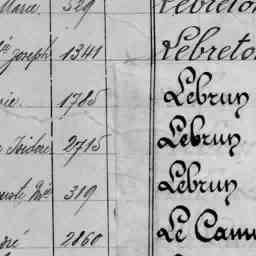 Marie 329 Lebreton
Joseph 1341 Lebreton
1785 Lebrun
Isidore 2715 Lebrun
319 Lebrun
2860 Le Camu